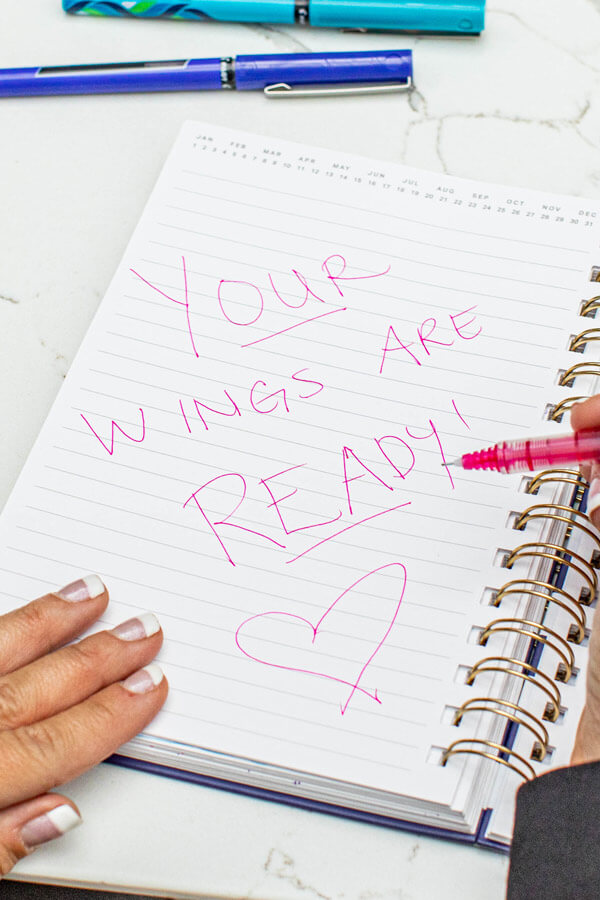 JAN FEB MAR APR MAY JUN JUL AUG SEP OCT NOV DEC
1 2 3 4 5 6 7 8 9 10 11 12 13 14 15 16 17 18 19 20 21 22 23 24 25 26 27 28 29 30 31
YOUR
WINGS ARE
READY!